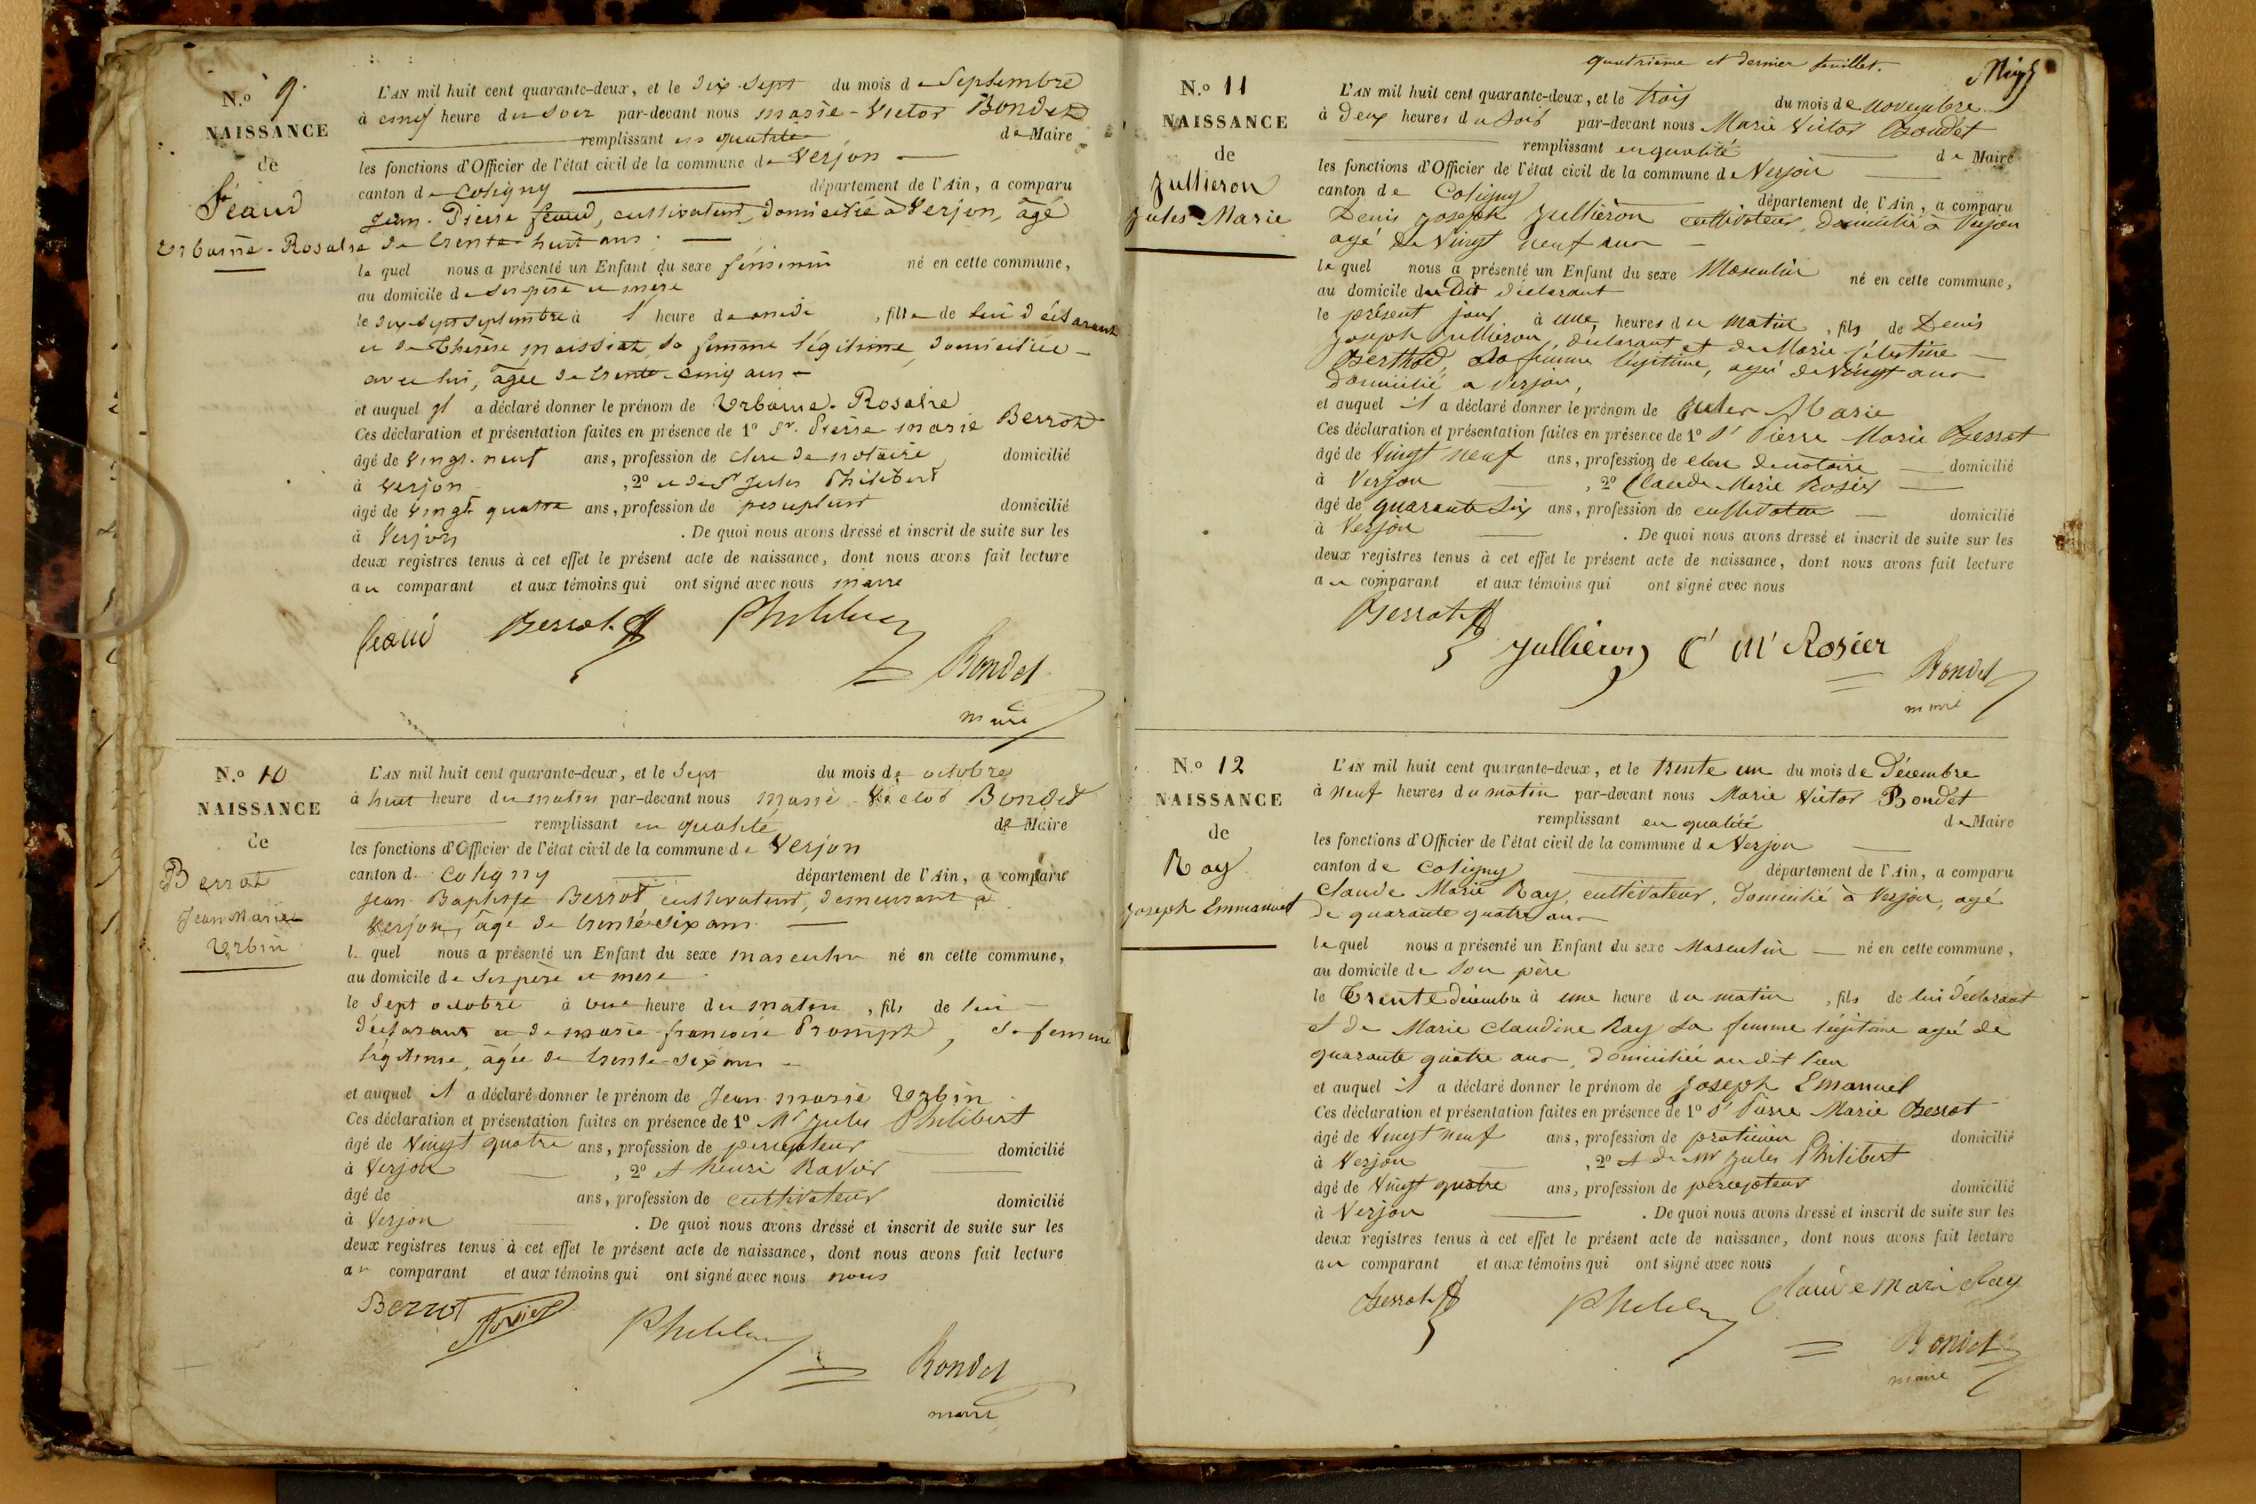 N.o 9.
NAISSANCE
de
Féaud
Urbaine-Rosalie
L'AN mil huit cent quarante-deux, et le dix-sept du mois de Septembre
à cinq heure du soir par-devant nous marie-Victor Bondet
remplissant en qualité de Maire
les fonctions d'Officier de l'état civil de la commune de Verjon
canton de Coligny département de l'Ain, a comparu
Jean-Pierre féaud, cultivateur, domicilié à Verjon, âgé
de trente huit ans.
lequel nous a présenté un Enfant du sexe féminin né en cette commune,
au domicile de ses père et mère
le dix-sept septembre à 1 heure de midi, fille de lui déclarant
et de Thérèse moissiat, sa femme légitime, domiciliée
avec lui, âgée de trente-cinq ans
et auquel il a déclaré donner le prénom de Urbaine-Rosalie
Ces déclaration et présentation faites en présence de 1o Sr. Pierre marie Berrod
âgé de vingt-neuf ans, profession de clerc de notaire domicilié
à Verjon, 2o et de Sr Jules Philibert
âgé de vingt quatre ans, profession de percepteur domicilié
à Verjon. De quoi nous avons dressé et inscrit de suite sur les
deux registres tenus à cet effet le présent acte de naissance, dont nous avons fait lecture
au comparant et aux témoins qui ont signé avec nous maire
feaud Berrot Philibert
Bondet
maire
N.o 10
NAISSANCE
de
Berrot
Jean Marie
Urbin
L'AN mil huit cent quarante-deux, et le sept du mois de octobre
à huit heure du matin par-devant nous marie-Victor Bondet
remplissant en qualité de Maire
les fonctions d'Officier de l'état civil de la commune de Verjon
canton d. Coligny département de l'Ain, a comparu
Jean-Baptiste Berrot, cultivateur, demeurant à
Verjon, âgé de trente-six ans.
l. quel nous a présenté un Enfant du sexe masculin né en cette commune,
au domicile de ses père et mère
le sept octobre à une heure du matin, fils de lui
déclarant et de marie-françoise Prompt, sa femme
légitime, âgée de trente-six ans
et auquel il a déclaré donner le prénom de Jean-marie Urbin
Ces déclaration et présentation faites en présence de 1o Mr Jules Philibert
âgé de Vingt quatre ans, profession de percepteur domicilié
à Verjon, 2o et henri Ravier
âgé de ans, profession de cultivateur domicilié
à Verjon. De quoi nous avons dressé et inscrit de suite sur les
deux registres tenus à cet effet le présent acte de naissance, dont nous avons fait lecture
au comparant et aux témoins qui ont signé avec nous nous
Berrot Ravier
Philibert
Bondet
maire
quatrième et dernier feuillet.
N.o 11
NAISSANCE
de
Jullieron
Jules Marie
L'AN mil huit cent quarante-deux, et le trois du mois de novembre
à Deux heures du soir par-devant nous Marie Victor Bondet
remplissant en qualité de Maire
les fonctions d'Officier de l'état civil de la commune de Verjon
canton de Coligny département de l'Ain, a comparu
Denis Joseph Jullieron cultivateur, domicilié à Verjon
agé de Vingt neuf ans
lequel nous a présenté un Enfant du sexe Masculin né en cette commune,
au domicile du Dit déclarant
le présent jour à une heures du matin, fils de Denis
Joseph Jullieron, déclarant et de Marie Célestine
Berthod, sa femme légitime, agée de Vingt ans
domicilié a Verjon,
et auquel il a déclaré donner le prénom de Jules Marie
Ces déclaration et présentation faites en présence de 1o Sr Pierre Marie Berrot
âgé de Vingt neuf ans, profession de clerc de notaire domicilié
à Verjon, 2o Claude Marie Rosier
âgé de quarante six ans, profession de cultivateur domicilié
à Verjon. De quoi nous avons dressé et inscrit de suite sur les
deux registres tenus à cet effet le présent acte de naissance, dont nous avons fait lecture
au comparant et aux témoins qui ont signé avec nous
Berrot
Jullieron C M Rosier
Bondet
maire
N.o 12
NAISSANCE
de
Ray
Joseph Emmanuel
L'AN mil huit cent quarante-deux, et le trente un du mois de Décembre
à neuf heures du matin par-devant nous Marie Victor Bondet
remplissant en qualité de Maire
les fonctions d'Officier de l'état civil de la commune de Verjon
canton de Coligny département de l'Ain, a comparu
Claude Marie Ray, cultivateur, domicilié à Verjon, agé
de quarante quatre ans
lequel nous a présenté un Enfant du sexe Masculin né en cette commune,
au domicile de son père
le Trente décembre à une heure du matin, fils de lui déclarant
et de Marie Claudine Ray sa femme légitime agée de
quarante quatre ans, domiciliée au dit lieu
et auquel il a déclaré donner le prénom de Joseph Emanuel
Ces déclaration et présentation faites en présence de 1o Sr Pierre Marie Berrot
âgé de Vingt neuf ans, profession de praticien domicilié
à Verjon, 2o et de Mr Jules Philibert
âgé de Vingt quatre ans, profession de percepteur domicilié
à Verjon. De quoi nous avons dressé et inscrit de suite sur les
deux registres tenus à cet effet le présent acte de naissance, dont nous avons fait lecture
au comparant et aux témoins qui ont signé avec nous
Berrot Philibert Claude Marie Ray
Bondet
maire